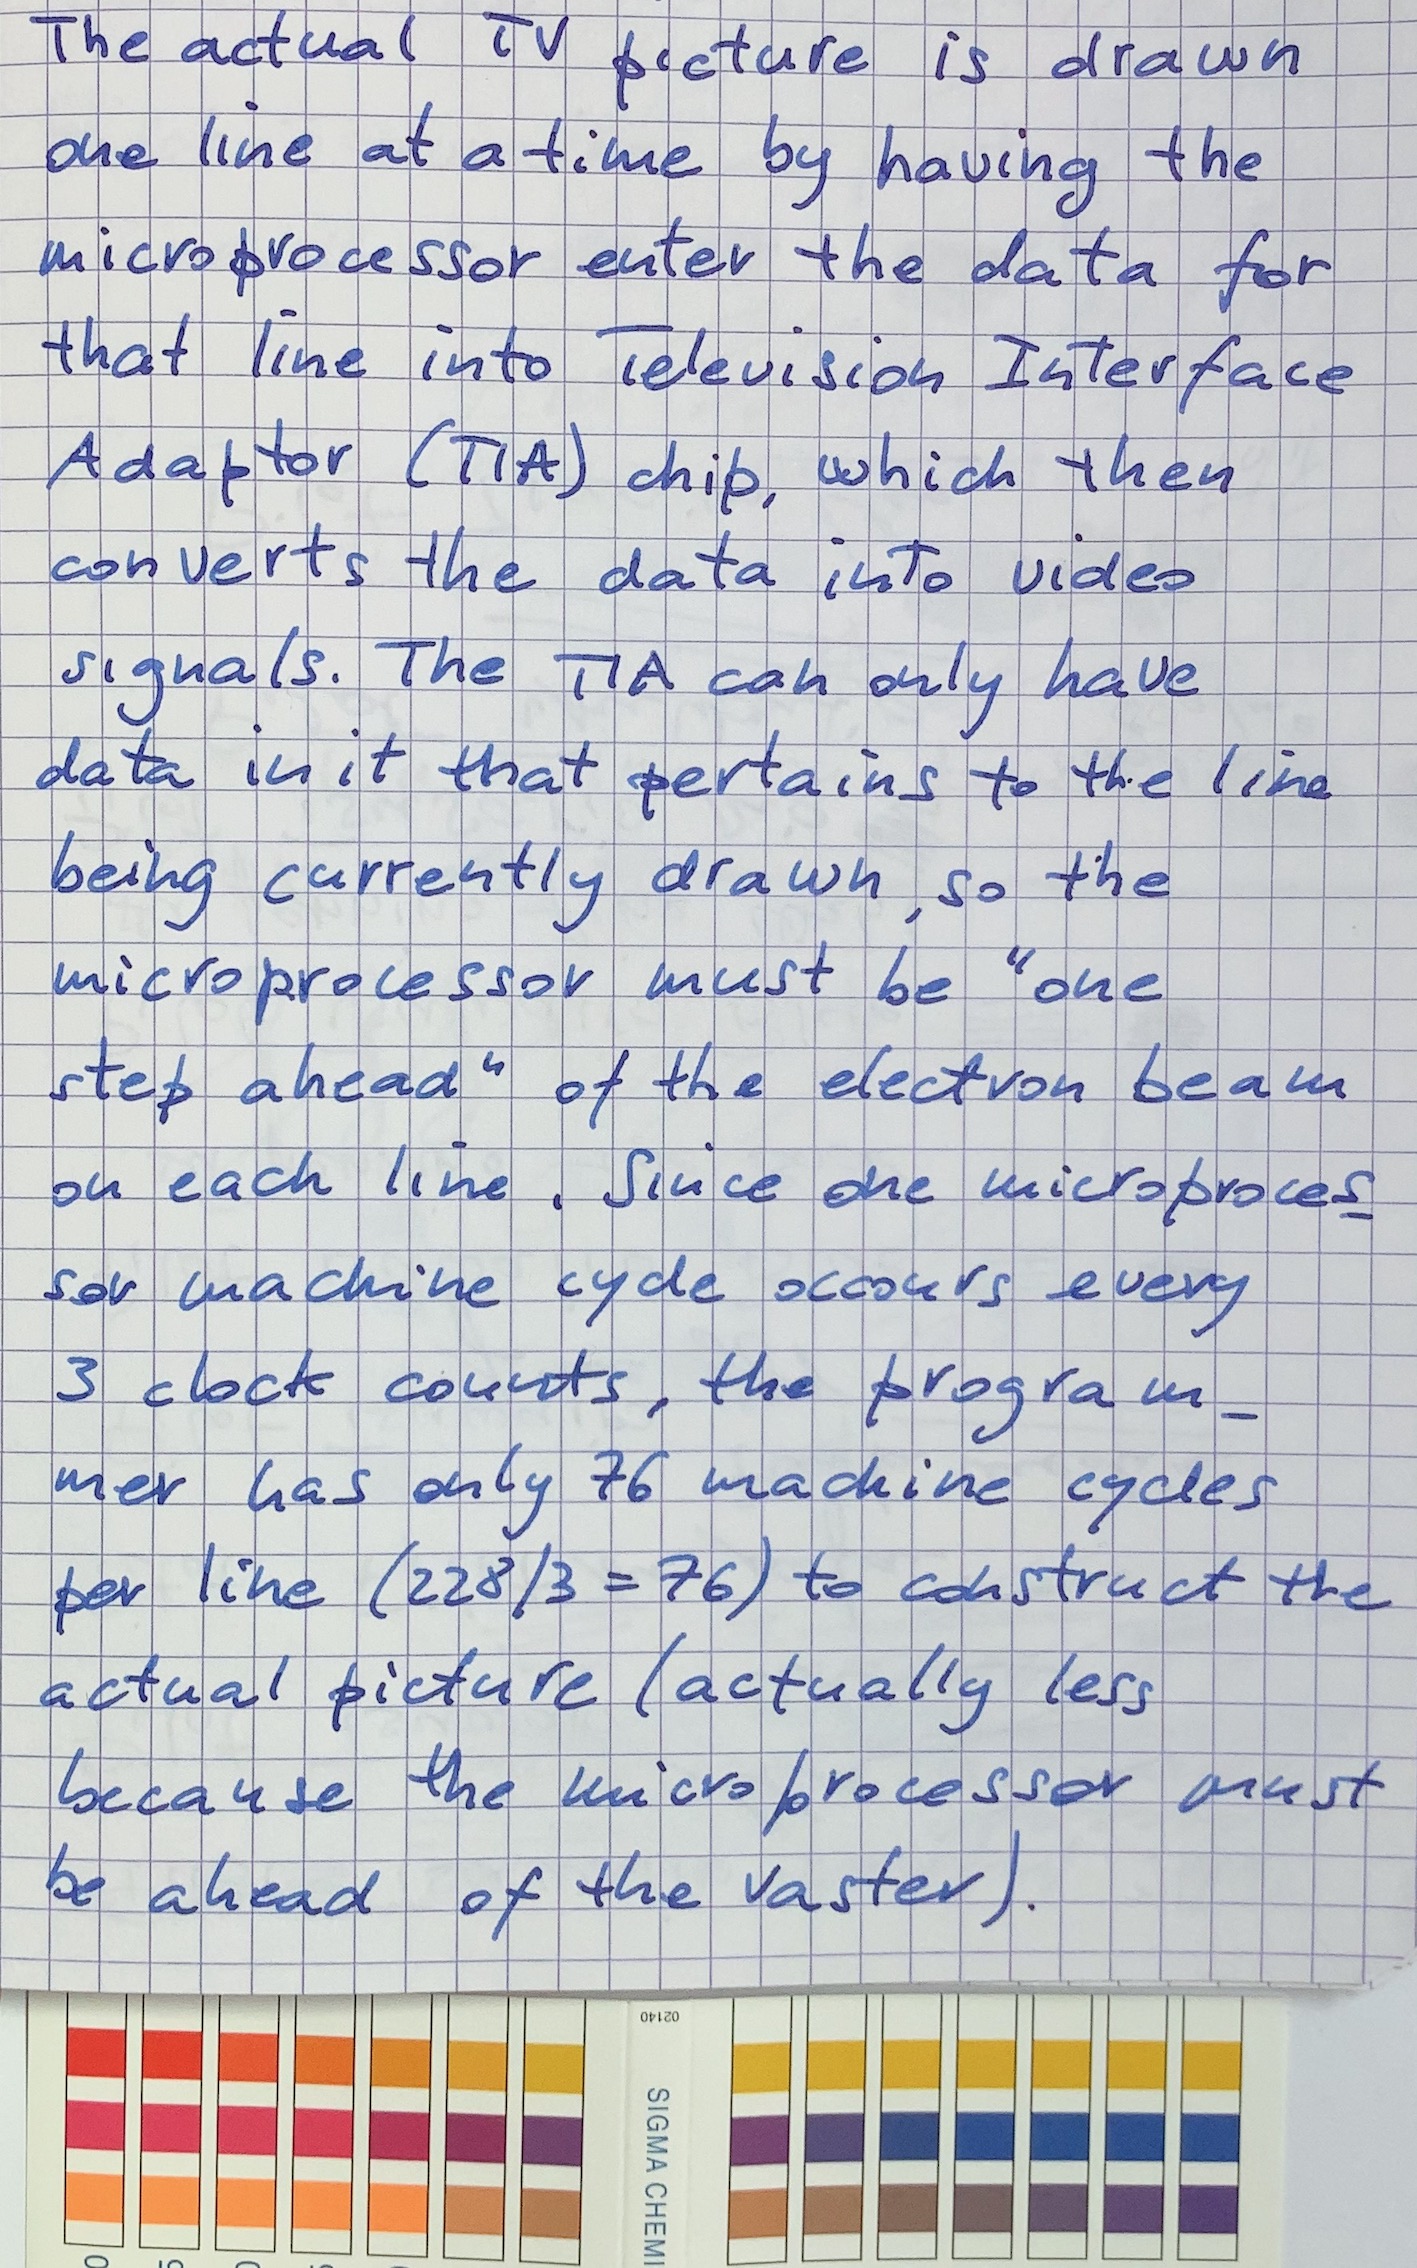 The actual TV picture is drawn
one line at a time by having the
microprocessor enter the data for
that line into Television Interface
Adaptor (TIA) chip, which then
converts the data into video
signals. The TIA can only have
data in it that pertains to the line
being currently drawn, so the
microprocessor must be "one
step ahead" of the electron beam
on each line. Since one microproces_
sor machine cycle occours every
3 clock counts, the program_
mer has only 76 machine cycles
per line (228/3 = 76) to construct the
actual picture (actually less
because the microprocessor must
be ahead of the raster).
02140
SIGMA CHEMI